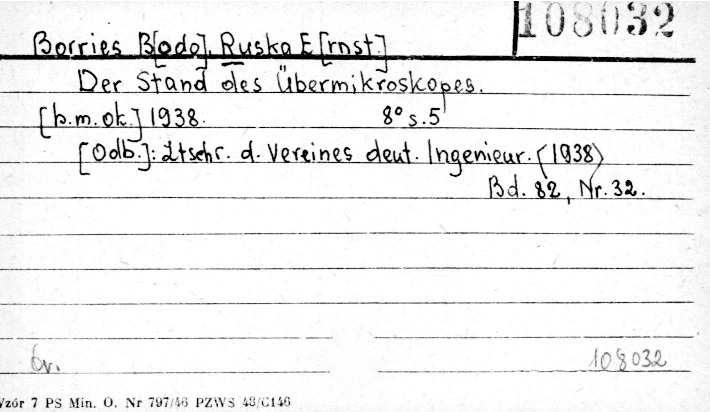 108032
Borries B[odo], Ruska E[rnst.]
Der Stand des Übermikroskopes.
[b.m.ok.] 1938. 8° s. 5
[Odb.]: Ztschr. d. Vereines deut. Ingenieur. (1938)
Bd. 82, Nr. 32.
br. 108032
Wzór 7 PS Min. O. Nr 797/46 PZWS 48/C146